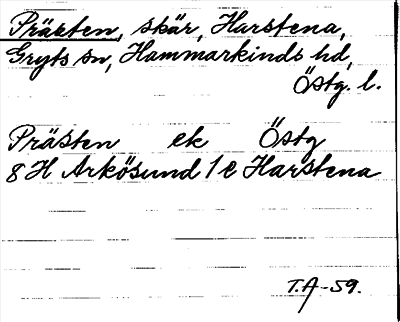 Prästen, skär, Harstena,
Gryts sn, Hammarkinds hd,
Östg. l.
Prästen ek Östg
8 H Arkösund 1 e Harstena
T.A-59.